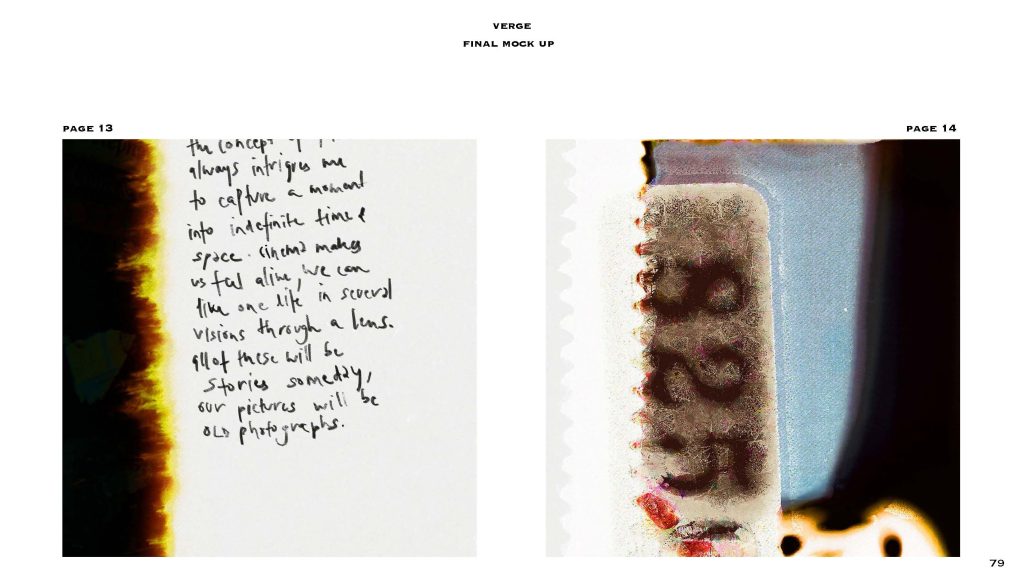 VERGE
FINAL MOCK UP
PAGE 13
PAGE 14
the concept of
always intrigues me
to capture a moment
into indefinite time &
space. Cinema makes
us feel alive, we can
live one life in several
visions through a lens.
all of these will be
stories someday,
our pictures will be
OLD photographs.
79